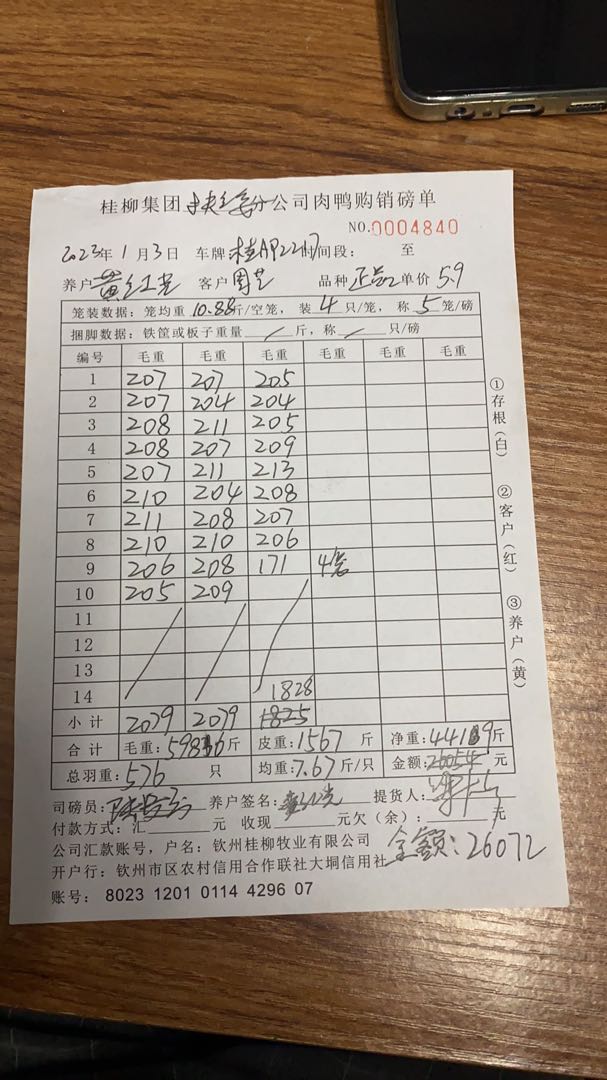 桂柳集团 公司肉鸭购销磅单
NO.0004840
2023年1月3日 车牌 桂AP2217 时间段: 至
养户 黄红光 客户 周艺 品种 正品2 单价 5.9
笼装数据: 笼均重 10.88 斤/空笼, 装 4 只/笼, 称 5 笼/磅
捆脚数据: 铁筐或板子重量 / 斤, 称 / 只/磅
编号 毛重 毛重 毛重 毛重 毛重 毛重
1 207 207 205
2 207 204 204
3 208 211 205
4 208 207 209
5 207 211 213
6 210 204 208
7 211 208 207
8 210 210 206
9 206 208 171 4笼
10 205 209
11
12
13
14 1828
小计 2079 2079 1825
合计 毛重: 5986斤 皮重: 1567 斤 净重: 4419斤
总羽重: 576 只 均重: 7.67斤/只 金额: 26054 元
司磅员: 养户签名: 提货人:
付款方式: 汇 元 收现 元欠(余): 元
公司汇款账号, 户名: 钦州桂柳牧业有限公司
金额: 26072
开户行: 钦州市区农村信用合作联社大垌信用社
账号: 8023 1201 0114 4296 07
①存根(白) ②客户(红) ③养户(黄)